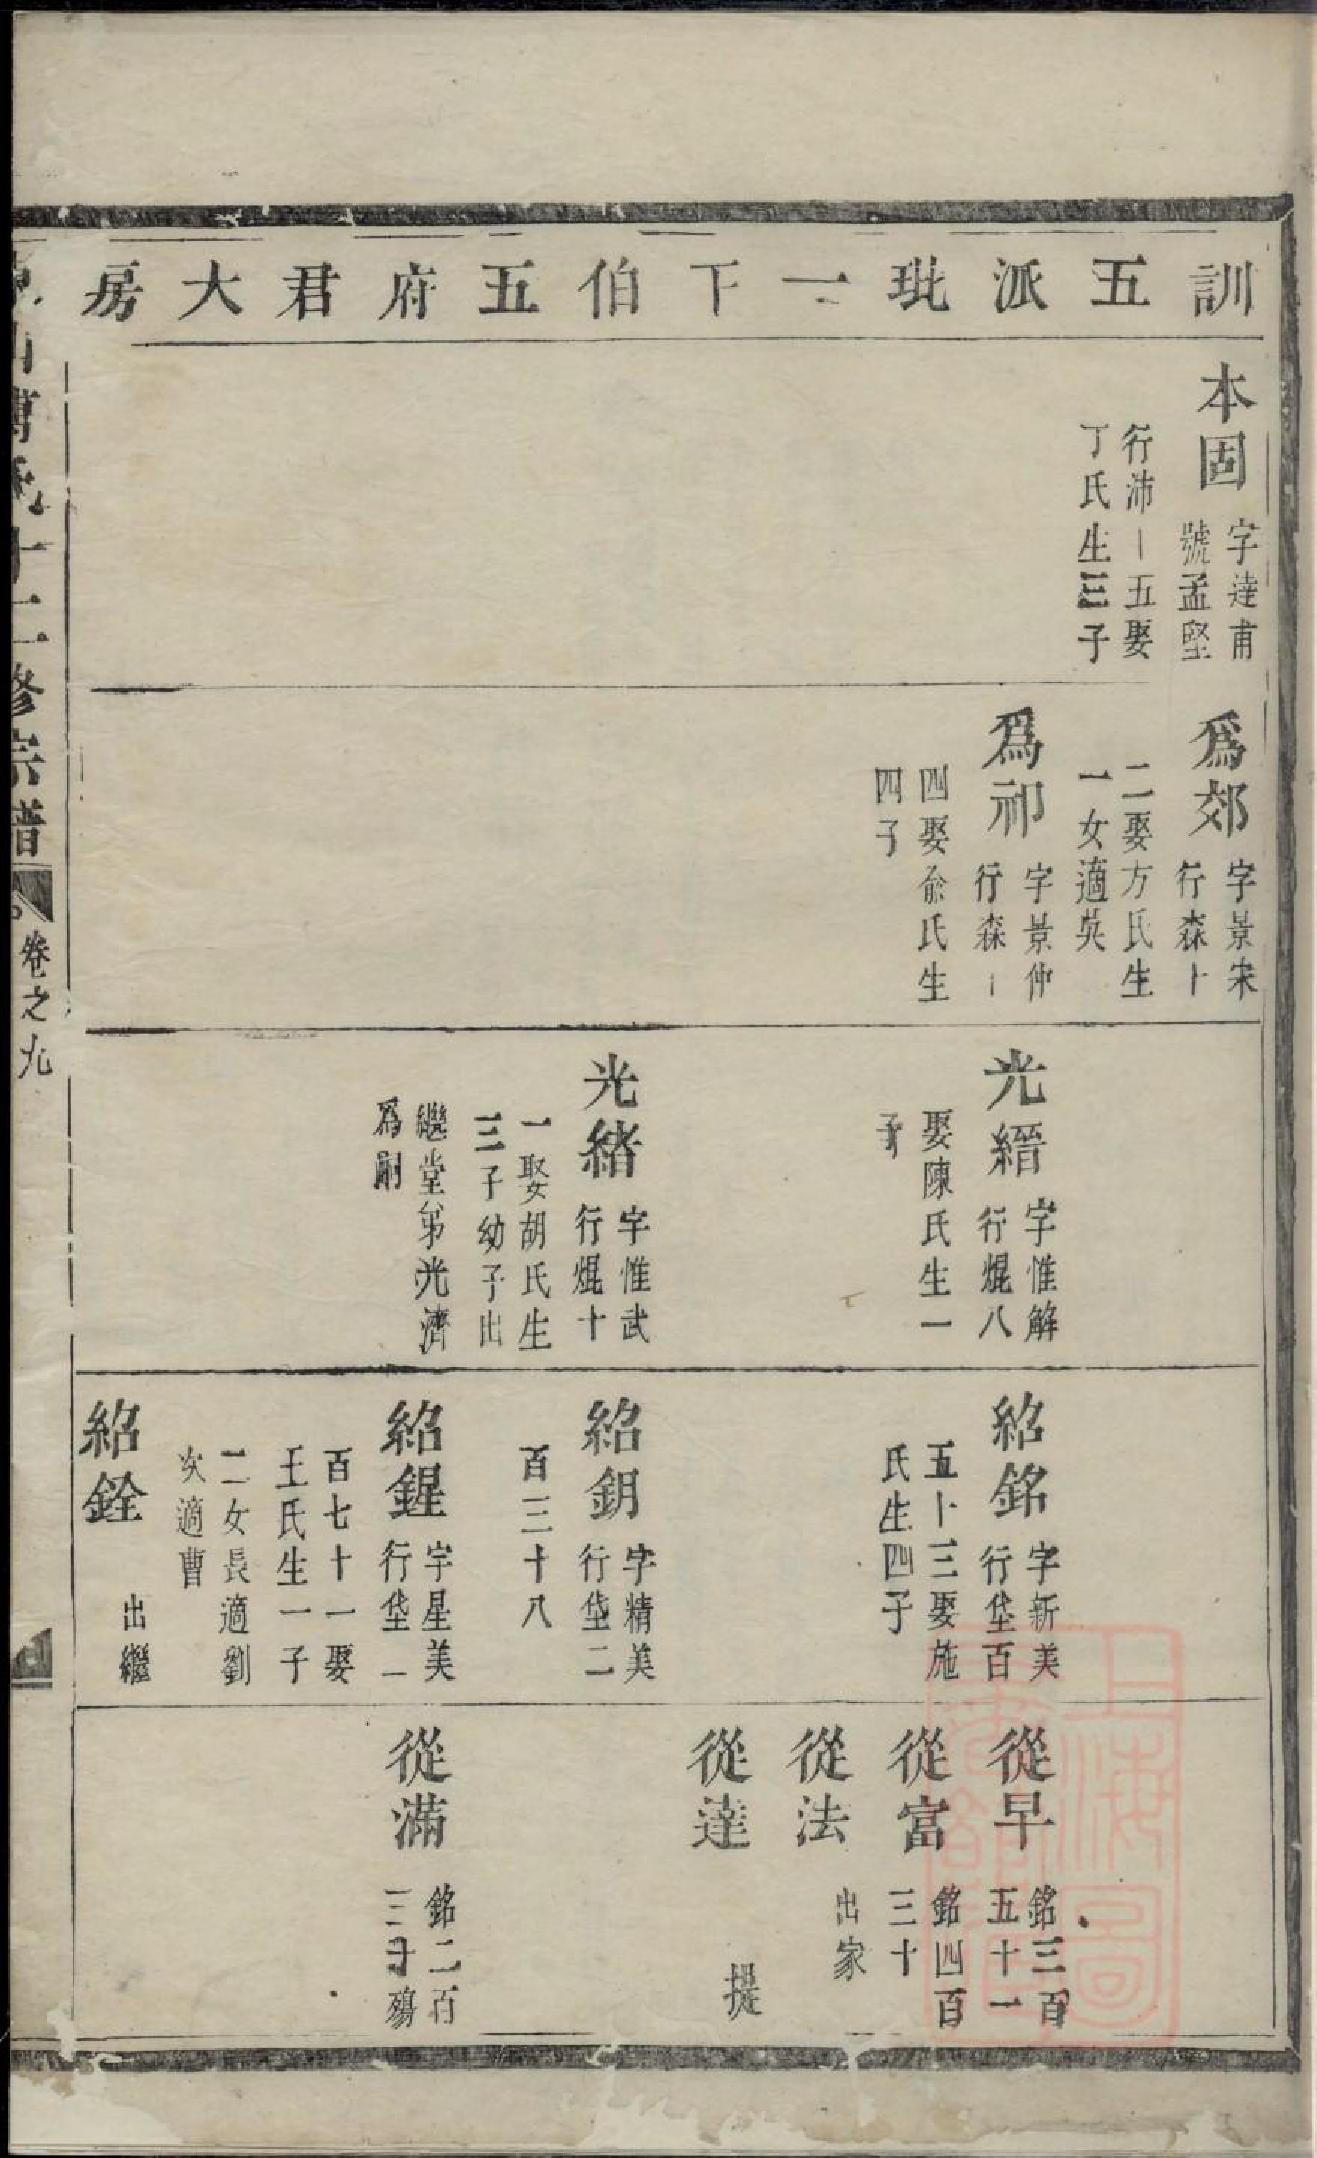 訓五派玭一下伯五府君大房
本固
字達甫
號孟堅
行沛一五娶
丁氏生三子
爲郊
字景宋
行森十
二娶方氏生
一女適吳
爲祁
字景仲
行森一
四娶俞氏生
四子
光縉
字惟解
行焜八
娶陳氏生一
子
光緒
字惟武
行焜十
一娶胡氏生
三子幼子出
繼堂弟光濟
爲嗣
紹銘
字新美
行垡百
五十三娶施
氏生四子
紹鈅
字精美
行垡二
百三十八
紹鍟
字星美
行垡一
百七十一娶
王氏生一子
二女長適劉
次適曹
紹銓
出繼
從早
銘三百
五十一
從富
銘四百
三十
從法
出家
從達
提
從滿
銘二百
三十殤
氏十二修宗譜
卷之九
上海圖